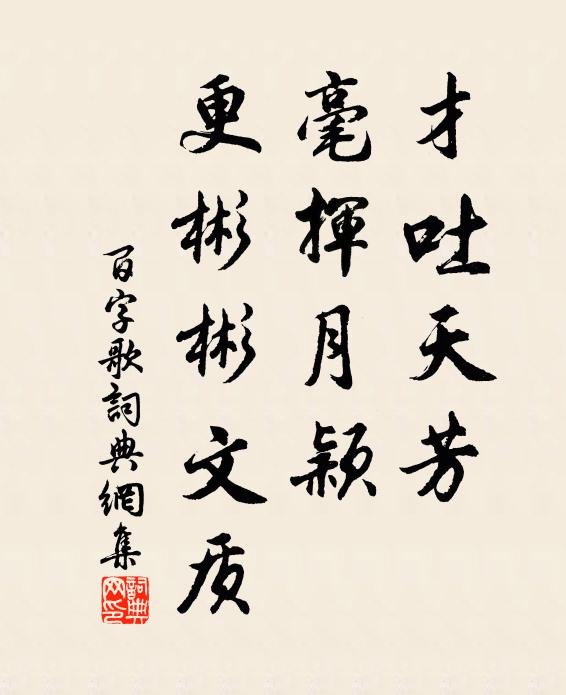 才吐天芳
毫揮月穎
更彬彬文质
百字歌詞典網集
詞典网印